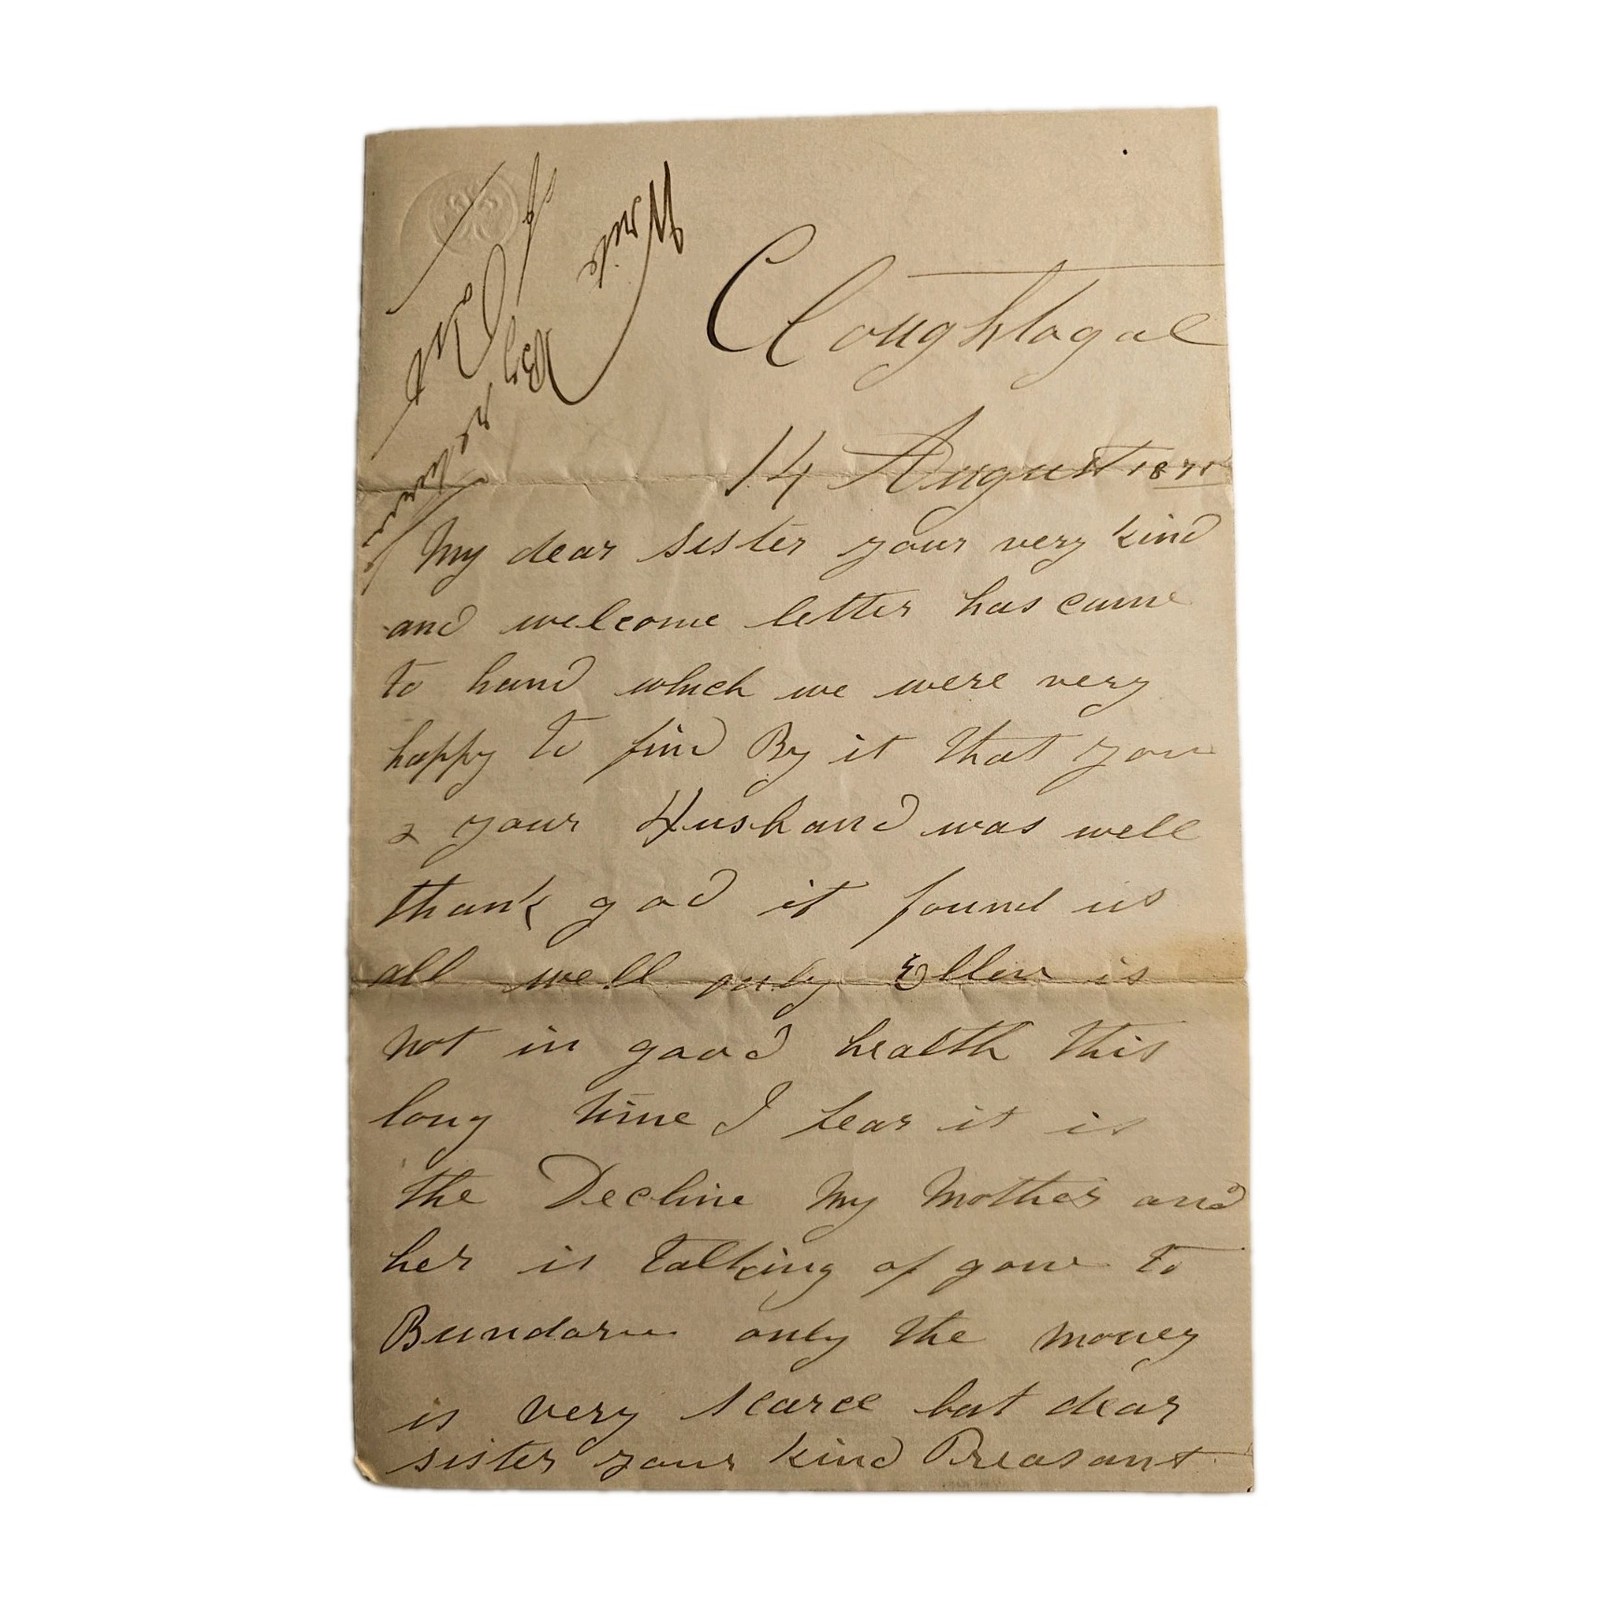 Write
By
Cloughtagal
14 August 1871
My dear sister your very kind
and welcome letter has came
to hand which we were very
happy to find By it that you
& your Husband was well
thank god it found us
all well only Ellen is
not in good health this
long time I fear it is
the Decline My Mother and
her is talking of gowe to
Bundoran only the money
is very scarce but dear
sister your kind Preasant